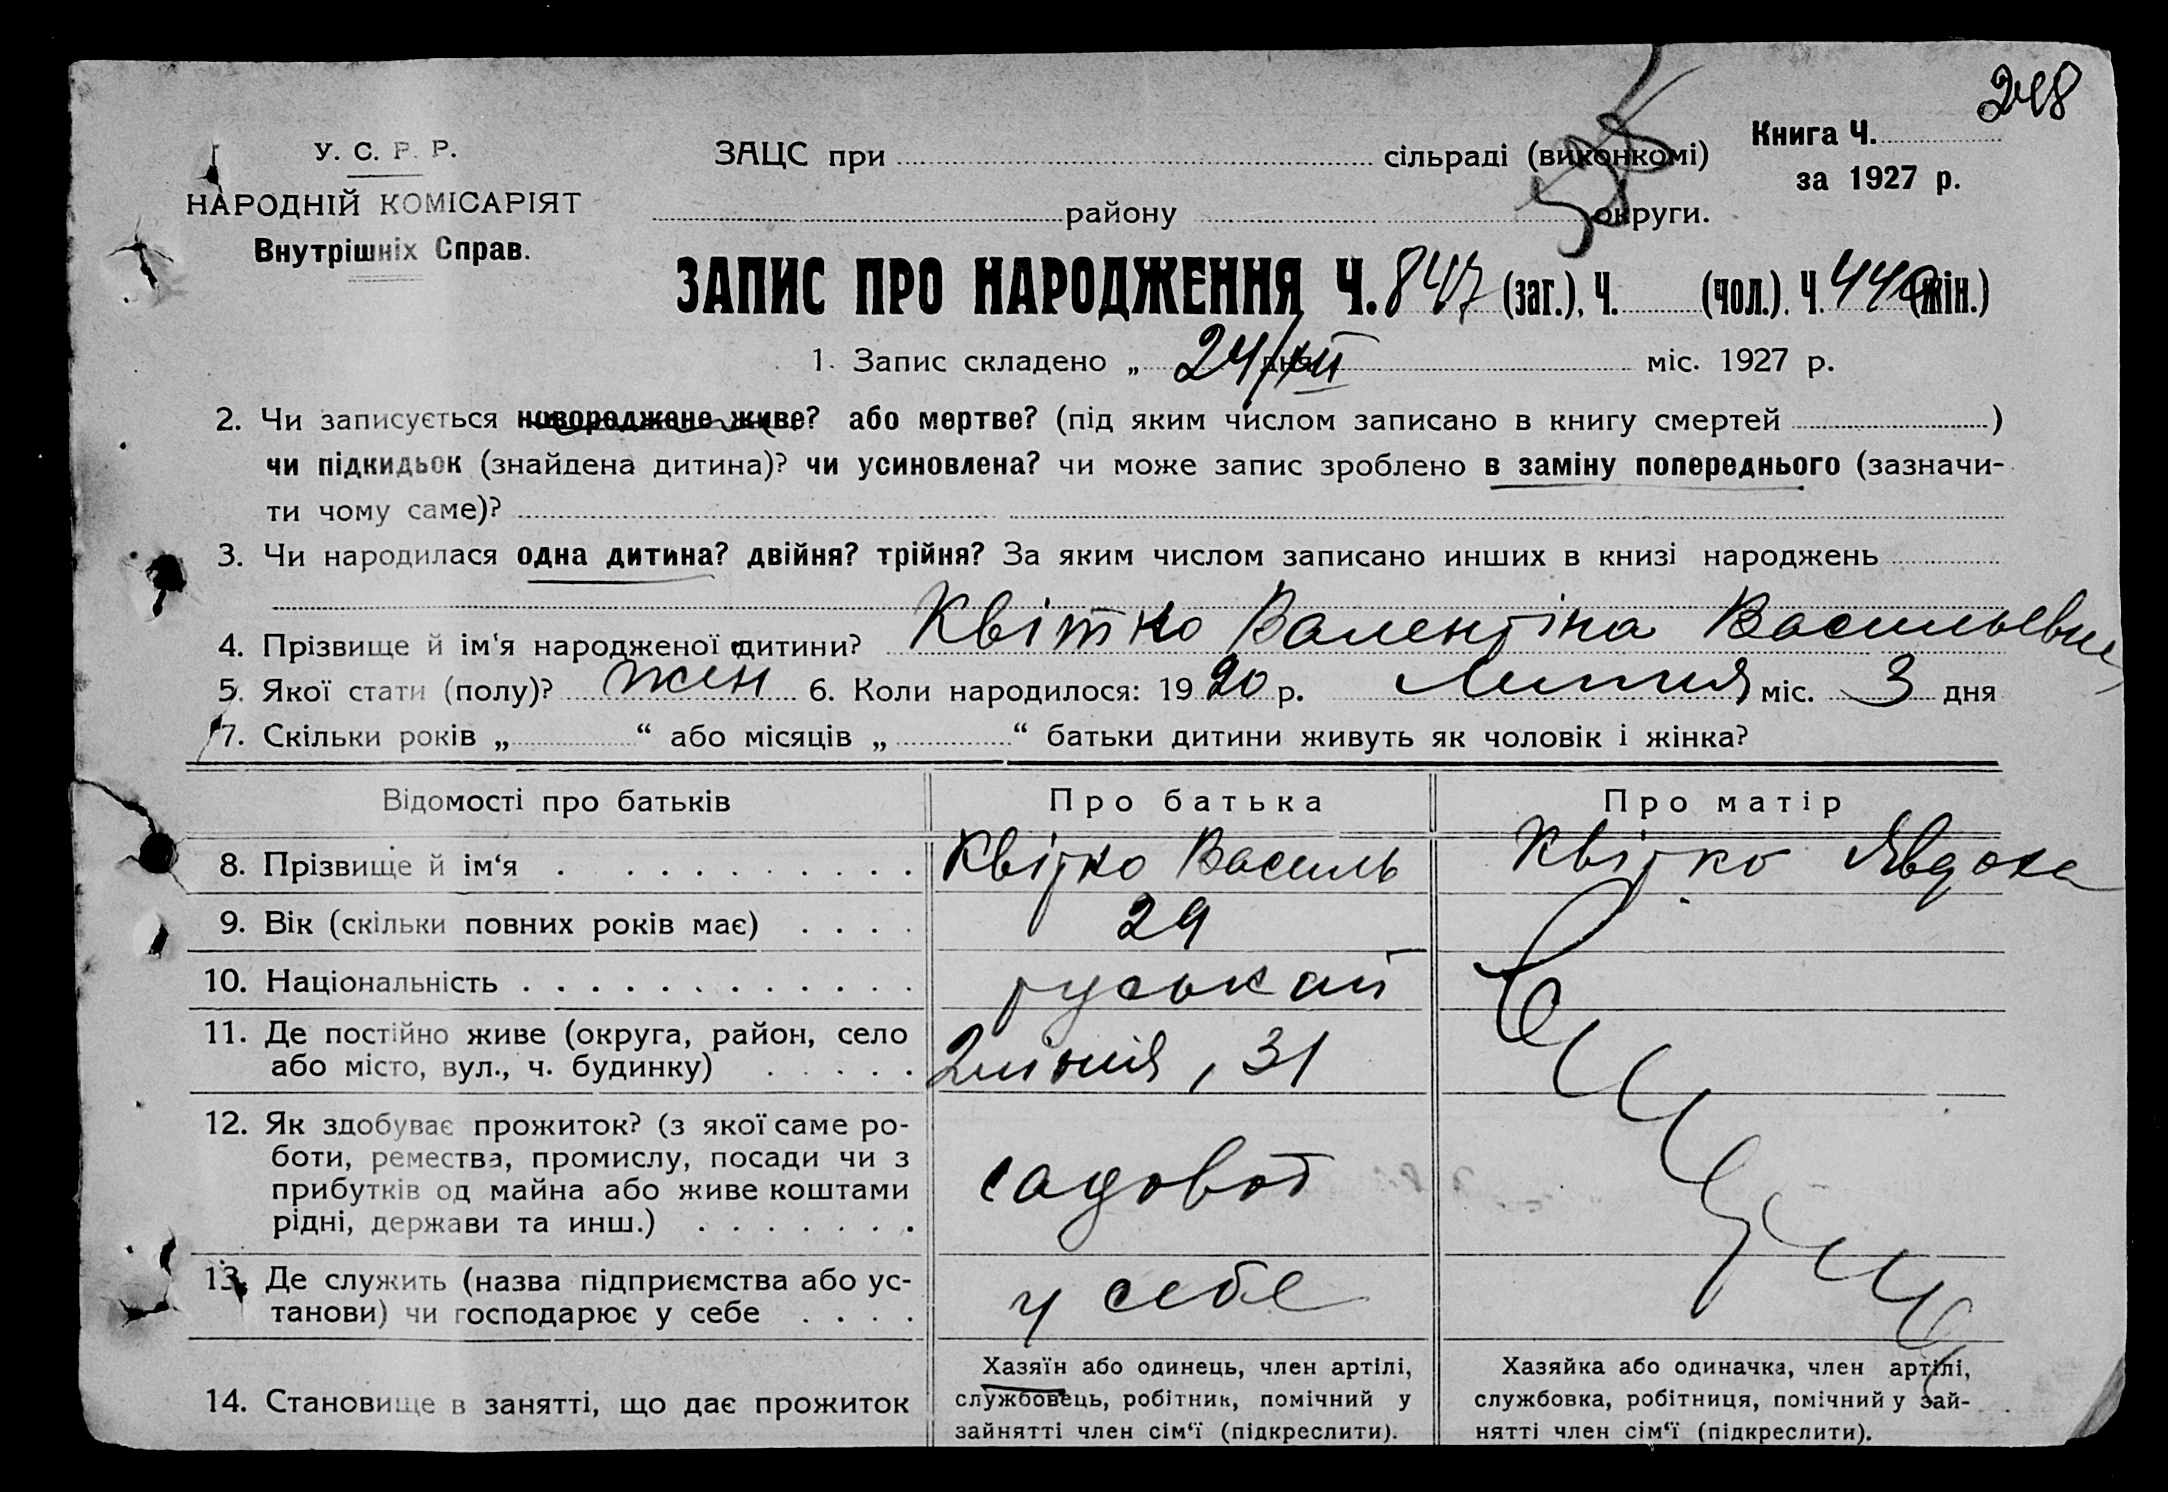 248
У. С. Р. Р.
НАРОДНІЙ КОМІСАРІЯТ
Внутрішніх Справ.
ЗАЦС при сільраді (виконкомі)
району округи.
Книга Ч.
за 1927 р.
ЗАПИС ПРО НАРОДЖЕННЯ Ч. 847 (заг.), Ч. (чол.). Ч. (жін.)
1. Запис складено „ 24/XII дня міс. 1927 р.
2. Чи записується новороджене живе? або мертве? (під яким числом записано в книгу смертей )
чи підкидьок (знайдена дитина)? чи усиновлена? чи може запис зроблено в заміну попереднього (зазначи-
ти чому саме)?
3. Чи народилася одна дитина? двійня? трійня? За яким числом записано инших в книзі народжень
4. Прізвище й ім'я народженої дитини? Квітко Валентіна Васильевна
5. Якої стати (полу)? жен 6. Коли народилося: 1920 р. Липня міс. 3 дня
7. Скільки років „ “ або місяців „ “ батьки дитини живуть як чоловік і жінка?
Відомості про батьків Про батька Про матір
8. Прізвище й ім‘я Квітко Василь Квітко Явдоха
9. Вік (скільки повних років має) 29
10. Національність руський
11. Де постійно живе (округа, район, село
або місто, вул., ч. будинку) 2 лінія, 31
12. Як здобуває прожиток? (з якої саме ро-
боти, ремества, промислу, посади чи з
прибутків од майна або живе коштами
рідні, держави та инш.) садовод
13. Де служить (назва підприємства або ус-
танови) чи господарює у себе у себе
14. Становище в занятті, що дає прожиток
Хазяїн або одинець, член артілі,
службовець, робітник, помічний у
зайнятті член сім‘ї (підкреслити).
Хазяйка або одиначка, член артілі,
службовка, робітниця, помічний у зай-
нятті член сім‘ї (підкреслити).